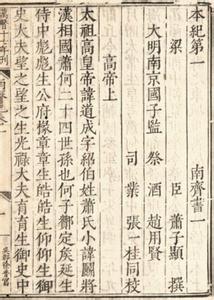 本紀第一 南齊書一
梁 臣蕭子顯撰
大明南京國子監 祭酒趙用賢
司業張一桂同校
高帝上
太祖高皇帝諱道成字紹伯姓蕭氏小諱鬬將
漢相國蕭何二十四世孫也何子酇定矦延生
侍中彪彪生公府掾章章生皓皓生仰仰生御
史大夫望之望之生光祿大夫育育生御史中